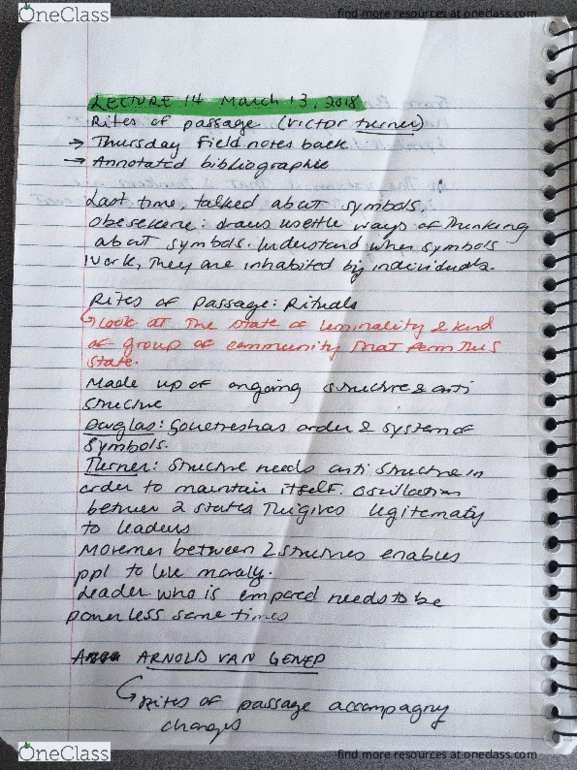 OneClass
find more resources at oneclass.com
LECTURE 14 March 13, 2018
Rites of passage (Victor Turner)
→ Thursday field notes back
→ Annotated bibliographie
Last time, talked about symbols.
ways of Thinking
about symbols. Understand when symbols
work, They are inhabited by individuals.
Rites of passage: Rituals
Look at The state of liminality & kind
of group of community That form This
state.
Made up of ongoing structure & anti
structure
Douglas: order & system of
symbols.
Turner: Structure needs anti structure in
order to maintain itself. Oscillation
between 2 states gives legitematy
to leaders
Movemen between 2 structures enables
ppl to live moraly.
Leader who is empared needs to be
powerless sometimes
ARNOLD VAN GENEP
Rites of passage accompagny
changes
OneClass
find more resources at oneclass.com